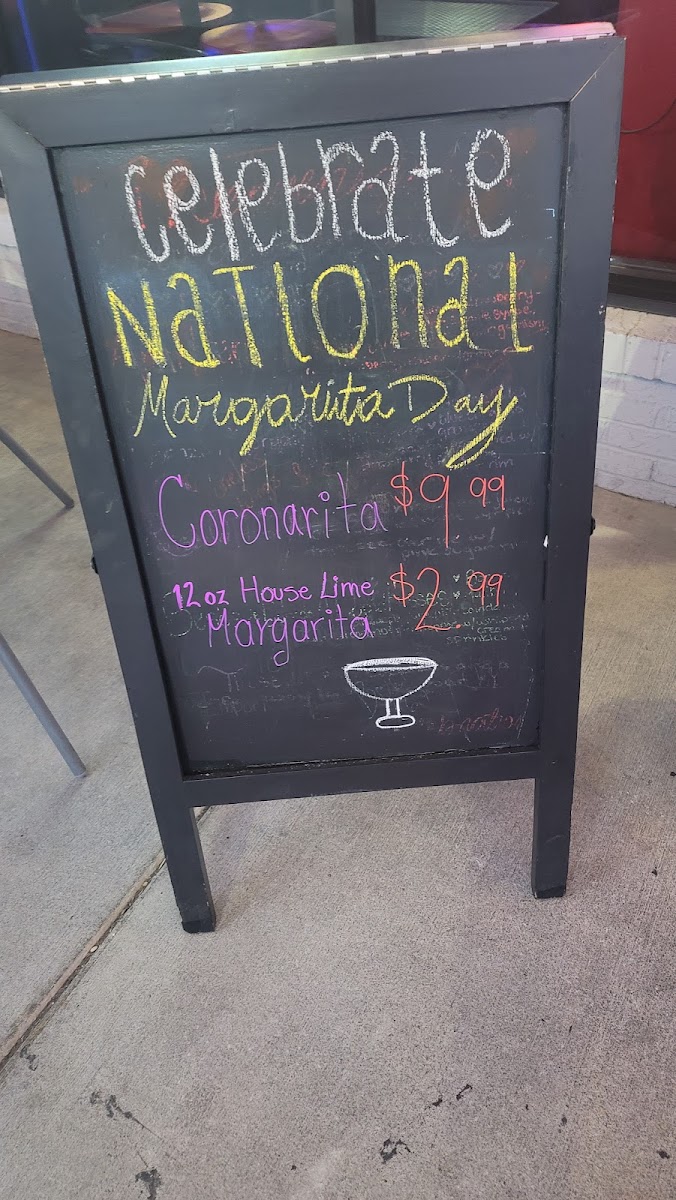 Celebrate
National
Margarita Day
Coronarita $9.99
12 oz House Lime $2.99
Margarita